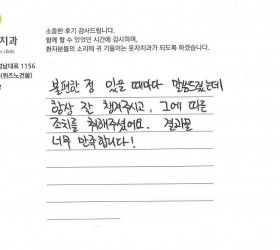 소중한 후기 감사드립니다.
함께 할 수 있었던 시간에 감사하며,
환자분들의 소리에 귀 기울이는 웃자치과가 되도록 하겠습니다.
치과
clinic
남대로 1156
(퀴즈노건물)
불편한 점 있을 때마다 말씀드렸는데
항상 잘 챙겨주시고, 그에 따른
조치를 취해주셨어요. 결과물
너무 만족합니다!